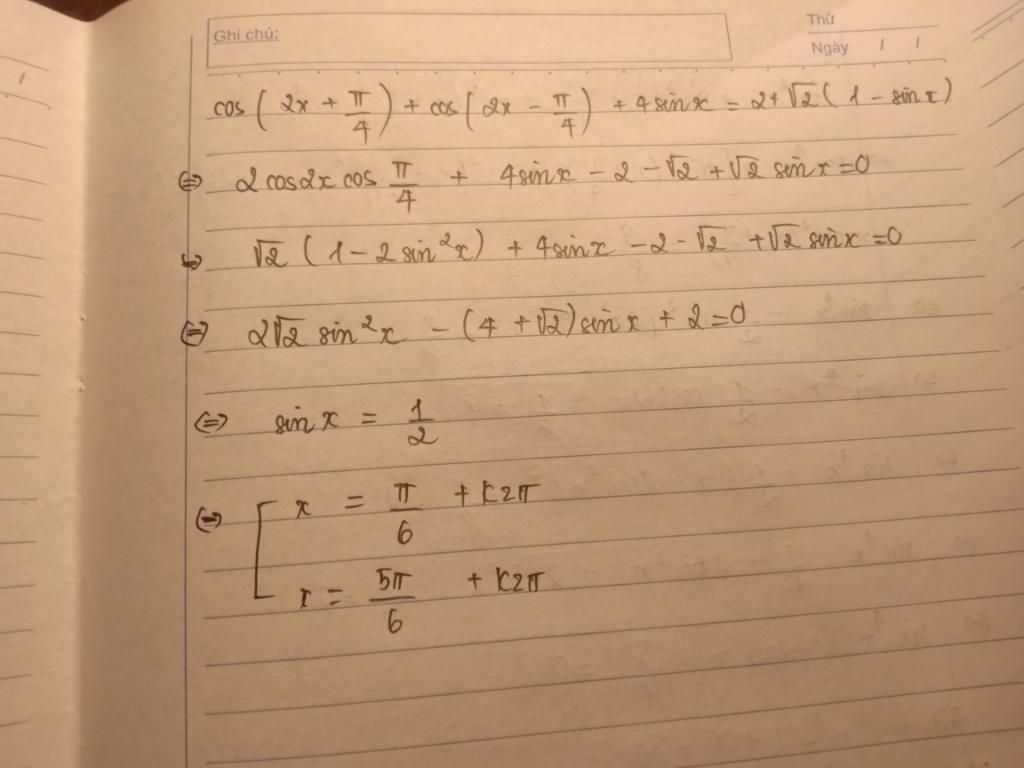 Ghi chú:
Thứ
Ngày / /
cos(2x + π/4) + cos(2x - π/4) + 4sinx = 2+√2(1-sinx)
⇔ 2cos2x cos π/4 + 4sinx - 2 - √2 + √2 sinx = 0
⇔ √2 (1 - 2sin²x) + 4sinx - 2 - √2 + √2 sinx = 0
⇔ 2√2 sin²x - (4 + √2)sinx + 2 = 0
⇔ sinx = 1/2
⇔ [ x = π/6 + k2π
x = 5π/6 + k2π